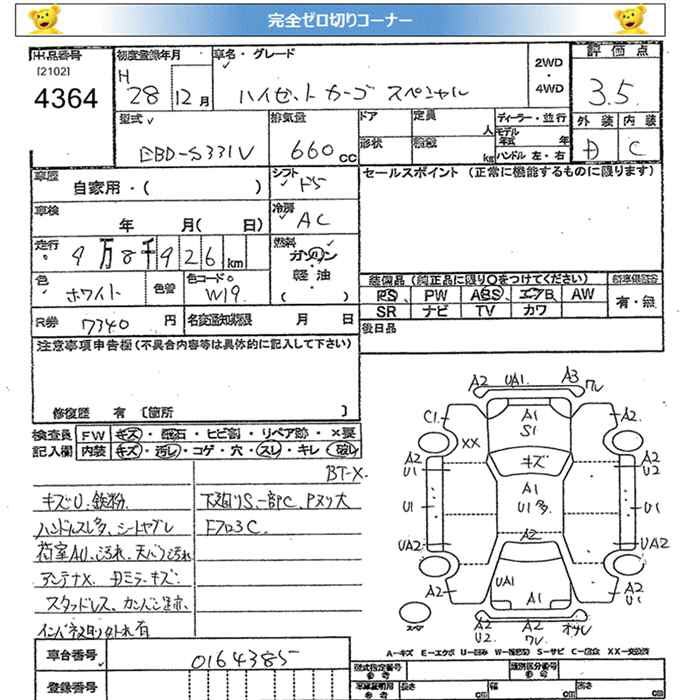 完全ゼロ切りコーナー
出品番号
[2102]
4364
初度登録年月
H
28 12月
車名・グレード
ハイゼットカーゴ スペシャル
2WD
・
4WD
評価点
3.5
外装 内装
D C
型式
EBD-S331V
排気量
660cc
ドア
形状
定員
人
積載
kg
ディーラー・並行
モデル
年式 年
ハンドル 左・右
車歴
自家用・( )
シフト
F5
セールスポイント (正常に機能するものに限ります)
車検
年 月( 日)
冷房
AC
走行
9万8千926km
燃料
ガソリン
軽・油
( )
色
ホワイト
色替
色コードo
W19
装備品 (純正品に限り○をつけてください)
PS PW ABS エアB AW
SR ナビ TV カワ
有・無
R券
7340円
名変通知期限 月 日
後日品
注意事項申告欄(不具合内容等は具体的に記入して下さい)
修復歴 有 [箇所 ]
検査員
記入欄
FW キズ・飛石・ヒビ割・リペア跡・X要
内装 キズ・汚レ・コゲ・穴・スレ・キレ・破レ
BT-X
キズU、鉄粉
下廻りS、一部PC、Pヌリ大
ハンドルスレ多、シートヤブレ
Fフロ3C
荷室AU、汚れ、天バリ汚れ
アンテナX
スタッドレス、カンバン跡
車台番号
0164385
登録番号
A2 UA1. A3 ワレ
C1. A1 S1 A2.
XX
キズ
A2 U1 A2 U2
A1
U1 U1多 U1
UA2 A2 UA2
A2 UA1 A1 A2 U1
スペア
A2 U2 A2 ワレ オサレ
A-キズ E-エクボ U-凹み W-補修跡 S-サビ C-腐食 XX-交換済
型式指定番号
参考
類別区分番号
参考
車庫証明用
参考
長さ cm
幅 cm
高さ cm